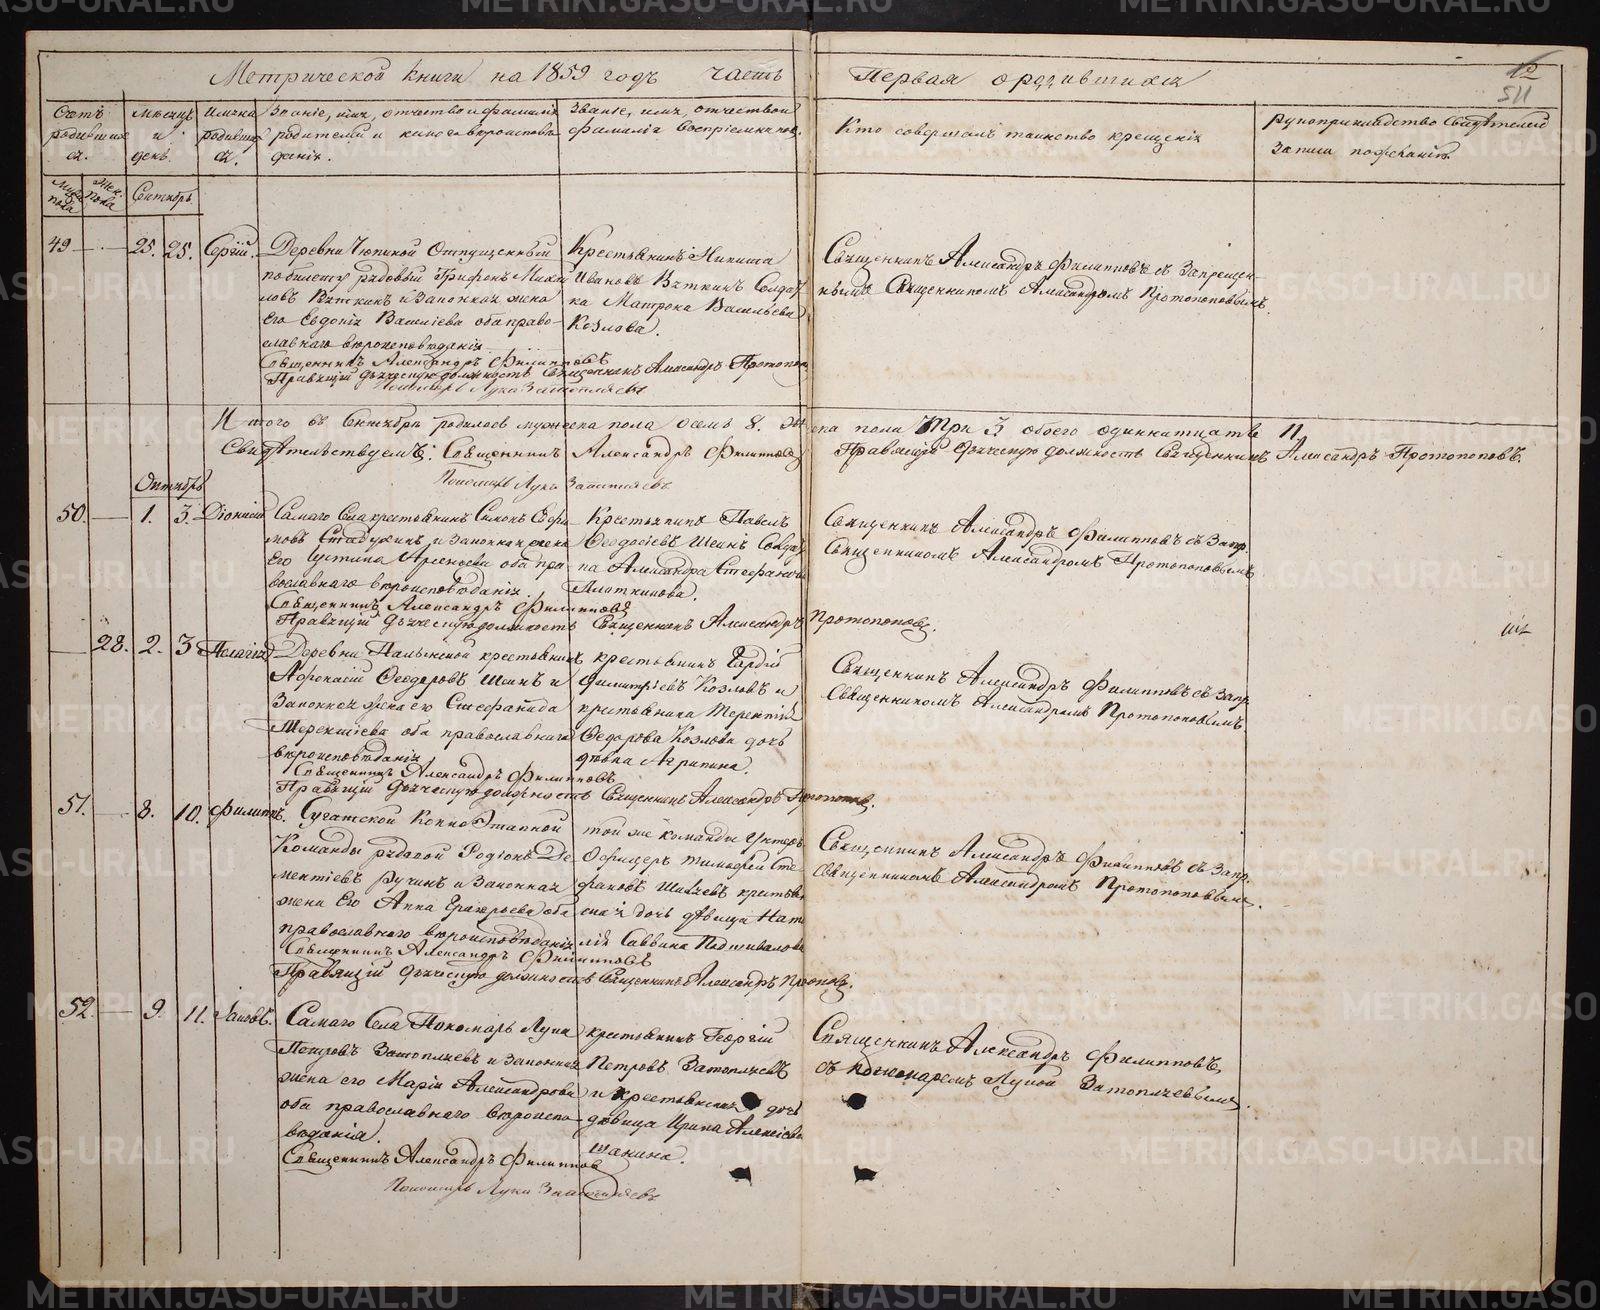 Метрической книги на 1859 годъ часть Первая о родившихся
12
511
Счетъ родившихся.
Месяцъ и день.
Имена родившихся.
Званіе, имя, отчество и фамилія родителей и какого вероисповеданія.
Званіе, имя, отчество и фамилія воспріемниковъ.
Кто совершалъ таинство крещенія
Рукоприкладство свидетелей записи по желанію
Муж. пола
Жен. пола
Сентябрь
49 — 25. 25. Сергій.
Деревни Отпущенный
по билету рядовый Трифонъ Михай
ловъ Вяткинъ и Законная жена
Его Евдокія Василіева оба право-
славнаго вероисповеданія
Священникъ Александръ Филипповъ
Правящій дьяческую должность Священникъ Александръ Протопопов
Пономарь Лука Затопляевъ
Крестьянинъ Никита
Ивановъ Вяткинъ Солдат
ка Матрона Васильева
Козлова.
Священникъ Александръ Филипповъ съ Запрещен-
нымъ Священникомъ Александромъ Протопоповымъ.
Итого въ Сентябре родилось мужеска пола осемь 8. женска пола Три 3 обоего одиннатцать 11.
Свидетельствуемъ: Священникъ Александръ Филипповъ Правящій дьяческую должность Священникъ Александръ Протопоповъ.
Пономарь Лука Затопляевъ
Октябрь
50. — 1. 3. Діонисій
Самаго Села крестьянинъ Симонъ
и Законная жена
Его Устина оба пра-
вославнаго вероисповеданія.
Священникъ Александръ Филипповъ
Правящій дьяческую должность Священникъ Александръ Протопоповъ.
Крестьянинъ Павелъ
Феодосіевъ Шеинъ Солдат
ка Александра Стефанова
Платкинова.
Священникъ Александръ Филипповъ съ Запр.
Священникомъ Александромъ Протопоповымъ
— 28. 2. 3 Пелагія
Деревни крестьянинъ
Афонасій Феодоровъ Шеинъ и
Законная жена его Стефанида
Терентіева оба православнаго
вероисповеданія
Священникъ Александръ Филипповъ
Правящій дьяческую должность Священникъ Александръ Протопоповъ.
крестьянинъ Гордій
Димитріевъ Козловъ и
крестьянина Терентія
Федорова Козлова дочь
девка Агрипина.
Священникъ Александръ Филипповъ съ Запр.
Священникомъ Александромъ Протопоповымъ.
51. — 8. 10. Филиппъ.
Сугатской Конно Этапной
Команды рядовой Родіонъ Де
ментіевъ Ручинъ и Законная
жена Его Анна Григорьева оба
православнаго вероисповеданія
Священникъ Александръ Филипповъ
Правящій дьяческую должность Священникъ Александръ Протопоповъ.
той же команды Унтеръ
Офицеръ Тимофей Сте
фановъ крестьян
ская дочь девица Ната
лія Саввина Подживалова
Священникъ Александръ Филипповъ съ Запр.
Священникомъ Александромъ Протопоповымъ.
52. — 9. 11. Іаковъ.
Самаго Села Пономарь Лука
Петровъ Затопляевъ и законная
жена его Марія Александрова
оба православнаго вероиспо-
веданія.
Священникъ Александръ Филиппов
Пономарь Лука Затопляевъ
крестьянинъ Георгій
Петровъ Затопляевъ
и крестьянская дочь
девица Ирина Алексіева
Шанина.
Священникъ Александръ Филипповъ,
съ пономаремъ Лукой Затопляевымъ.